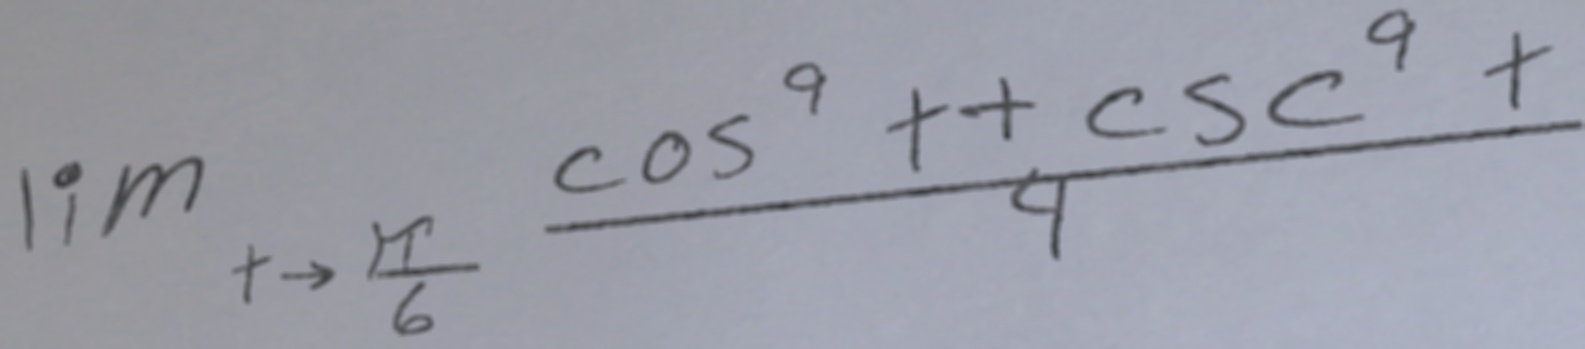 lim t→π/6 (cos⁹ t + csc⁹ t)/4